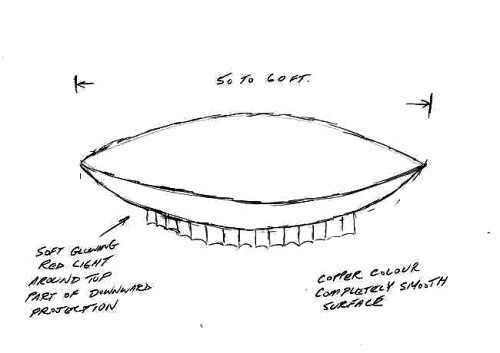 50 TO 60 FT.
SOFT GLOWING
RED LIGHT
AROUND TOP
PART OF DOWNWARD
PROJECTION
COPPER COLOUR
COMPLETELY SMOOTH
SURFACE